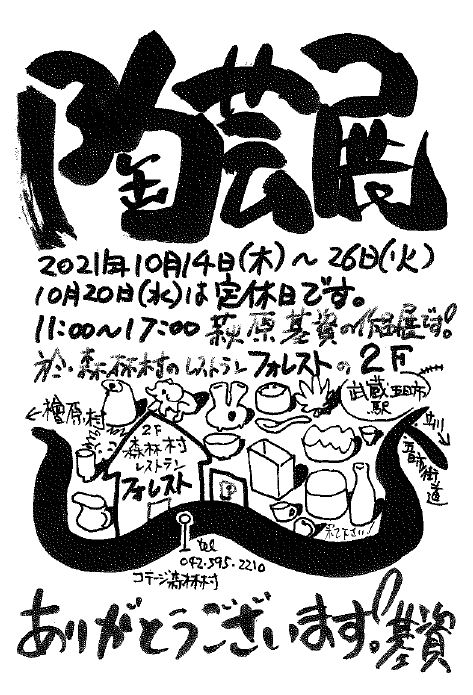 陶芸展
2021年10月14日(木)～26日(火)
10月20日(水)は定休日です。
11:00～17:00 萩原基資の作品展です!
於:森林村のレストランフォレストの2F
←檜原村
武蔵五日市駅
立川
五日市街道
2F
森林村
レストラン
フォレスト
P
来て下さい!
tel
042-595-2210
コテージ森林村
ありがとうございます!基資